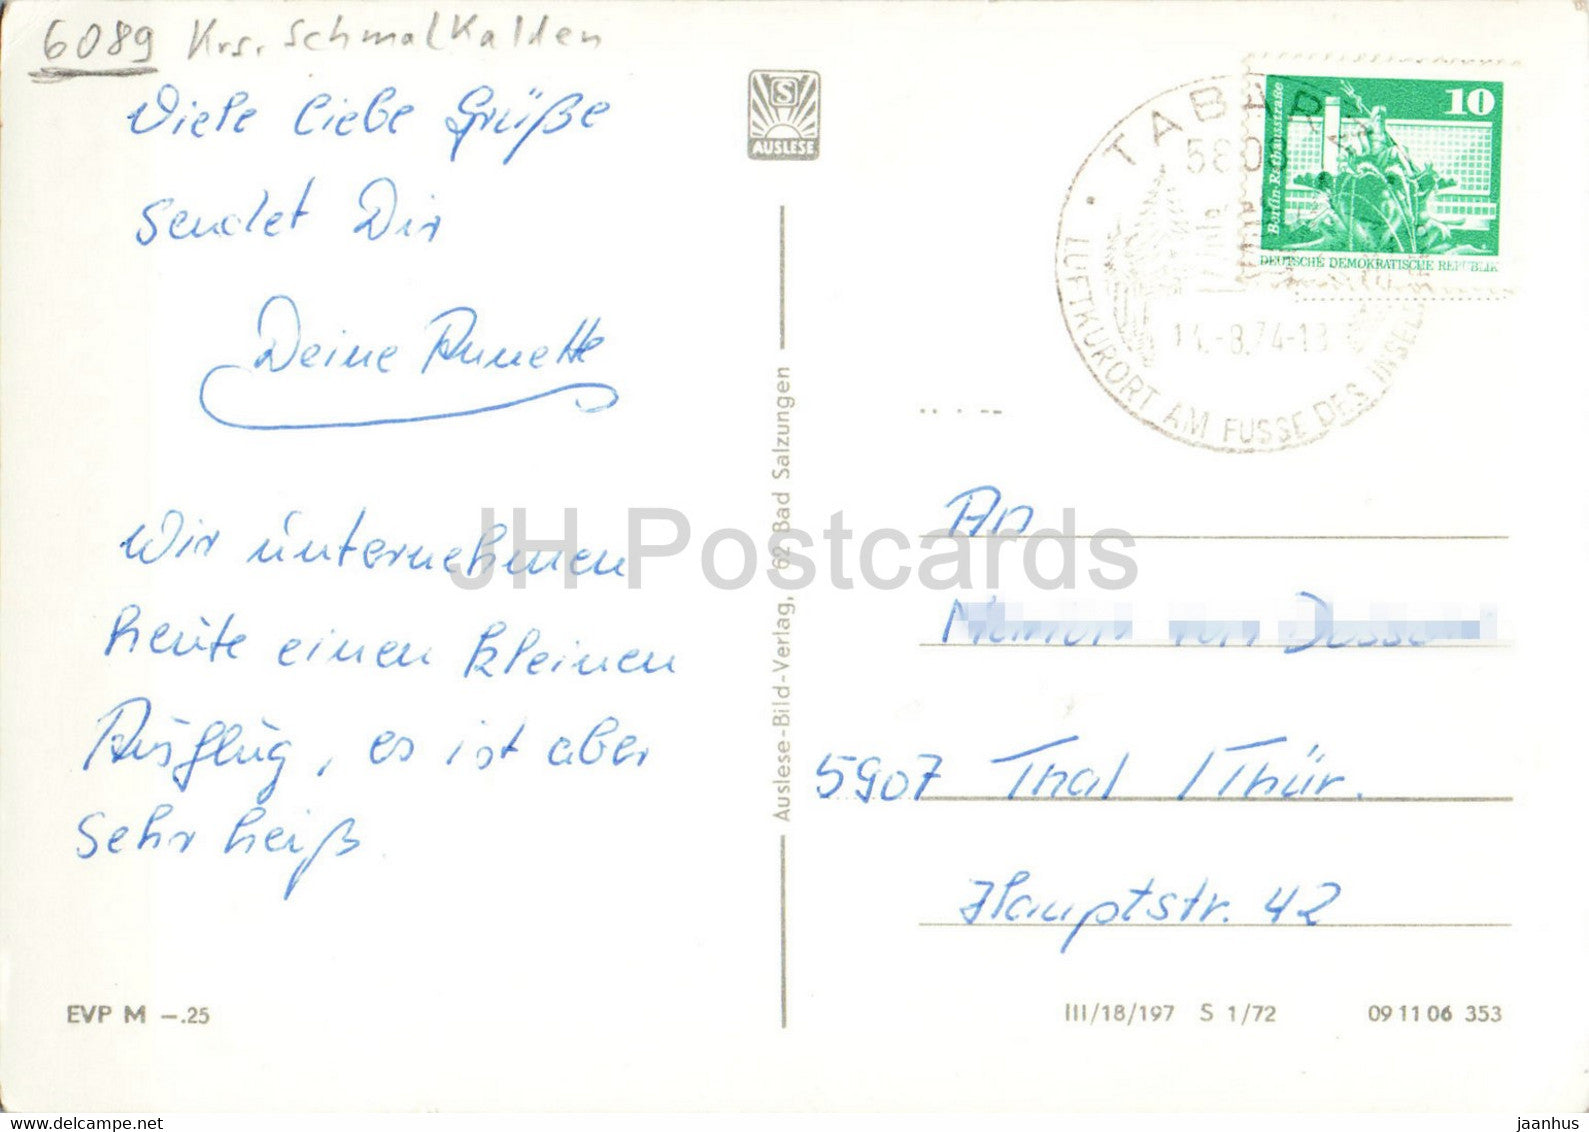 6089 Krs. Schmalkalden
Viele liebe Grüße
sendet Dir
Deine Annette
Wir unternehmen
heute einen kleinen
Ausflug, es ist aber
sehr heiß
EVP M –.25
S
AUSLESE
Auslese-Bild-Verlag, 62 Bad Salzungen
10
Berlin-Rathausstraße
DEUTSCHE DEMOKRATISCHE REPUBLIK
TABARZ
LUFTKURORT AM FUSSE DES
-8.74-18
An
5907 Thal / Thür.
Hauptstr. 42
III/18/197 S 1/72 09 11 06 353
JH Postcards
www.delcampe.net
jaanhus